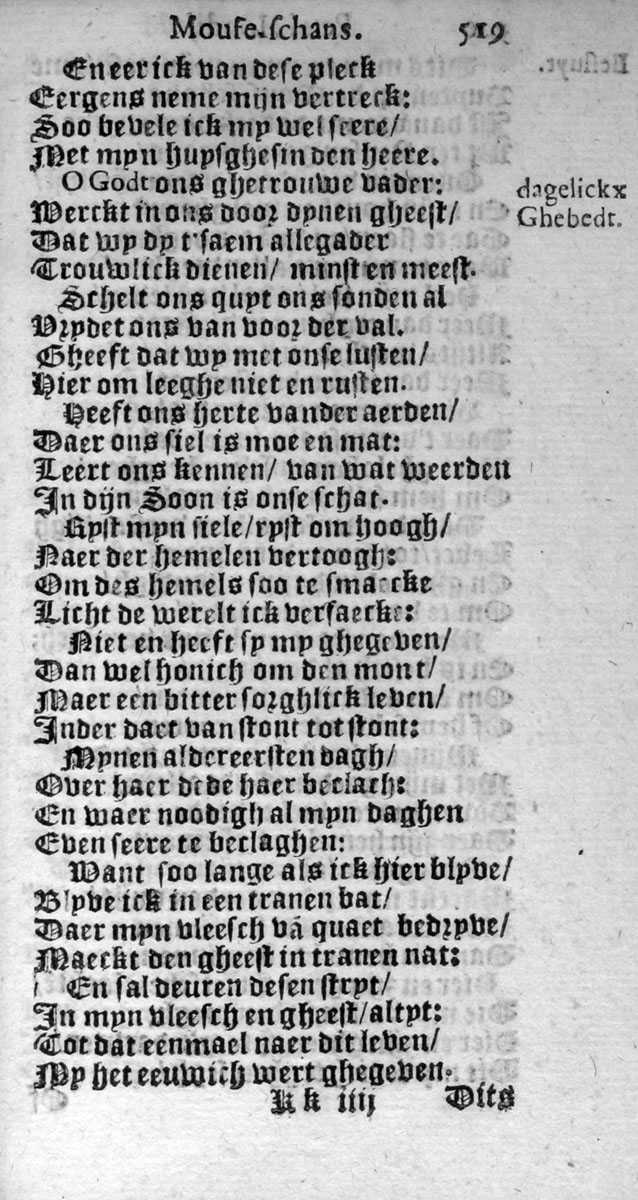 Mouse-schans. 519
En eer ick van dese pleck
Eergens neme mijn vertreck:
Soo bevele ick my wel seere/
Met myn huysghesin den heere.
O Godt ons ghetrouwe vader:
dagelickx
Werckt in ons door dynen gheest/
Ghebedt.
Dat wy dy t'saem allegader
Trouwlick dienen/ minst en meest.
Schelt ons quyt ons sonden al
Vrydet ons van voorder val.
Gheeft dat wy met onse lusten/
Hier om leeghe niet en rusten.
Heeft ons herte vander aerden/
Daer ons siel is moe en mat:
Leert ons kennen/ van wat weerden
In dijn Soon is onse schat.
Ryst myn siele/ryst om hoogh/
Naer der hemelen vertoogh:
Om des hemels soo te smaecke
Licht de werelt ick versaecke:
Niet en heeft sy my ghegeven/
Dan wel honich om den mont/
Maer een bitter sorghlick leven/
Inder daet van stont tot stont:
Mynen aldereersten dagh/
Over haer dede haer beclach:
En waer noodigh al myn daghen
Even seere te beclaghen:
Want soo lange als ick hier blyve/
Blyve ick in een tranen vat/
Daer myn vleesch vā quaet bedryve/
Maeckt den gheest in tranen nat:
En sal deuren desen stryt/
In myn vleesch en gheest/altyt:
Tot dat eenmael naer dit leven/
My het eeuwich wert ghegeven.
Kk iiij Dits